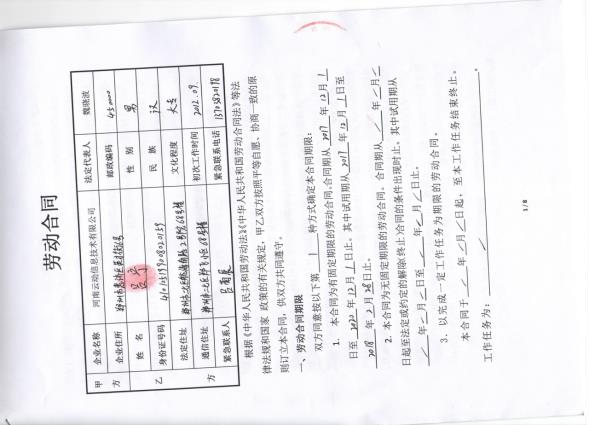 劳动合同
甲方 企业名称 河南云动信息技术有限公司 法定代表人 魏晓波
企业住所 邮政编码 450000
乙方 姓名 性别 男
身份证号码 民族 汉
法定住址 文化程度 大专
通信住址 初次工作时间 2012.09.
紧急联系人 紧急联系电话
根据《中华人民共和国劳动法》《中华人民共和国劳动合同法》等法
律法规和国家政策的有关规定，甲乙双方按照平等自愿、协商一致的原
则订立本合同，供双方共同遵守。
一、劳动合同期限
双方同意按以下第 1 种方式确定本合同期限：
1．本合同为有固定期限的劳动合同。合同期从 2017 年 12 月 1
日至 2020 年 12 月 1 日止。其中试用期从 2017 年 12 月 1 日至
2018 年 2 月 28 日止。
2．本合同为无固定期限的劳动合同。合同期从 / 年 / 月 /
日起至法定或约定的解除(终止)合同的条件出现时止。其中试用期从
/ 年 / 月 / 日至 / 年 / 月 / 日止。
3．以完成一定工作任务为期限的劳动合同。
本合同于 / 年 / 月 / 日起，至本工作任务结束终止。
工作任务为： / 。
1/8